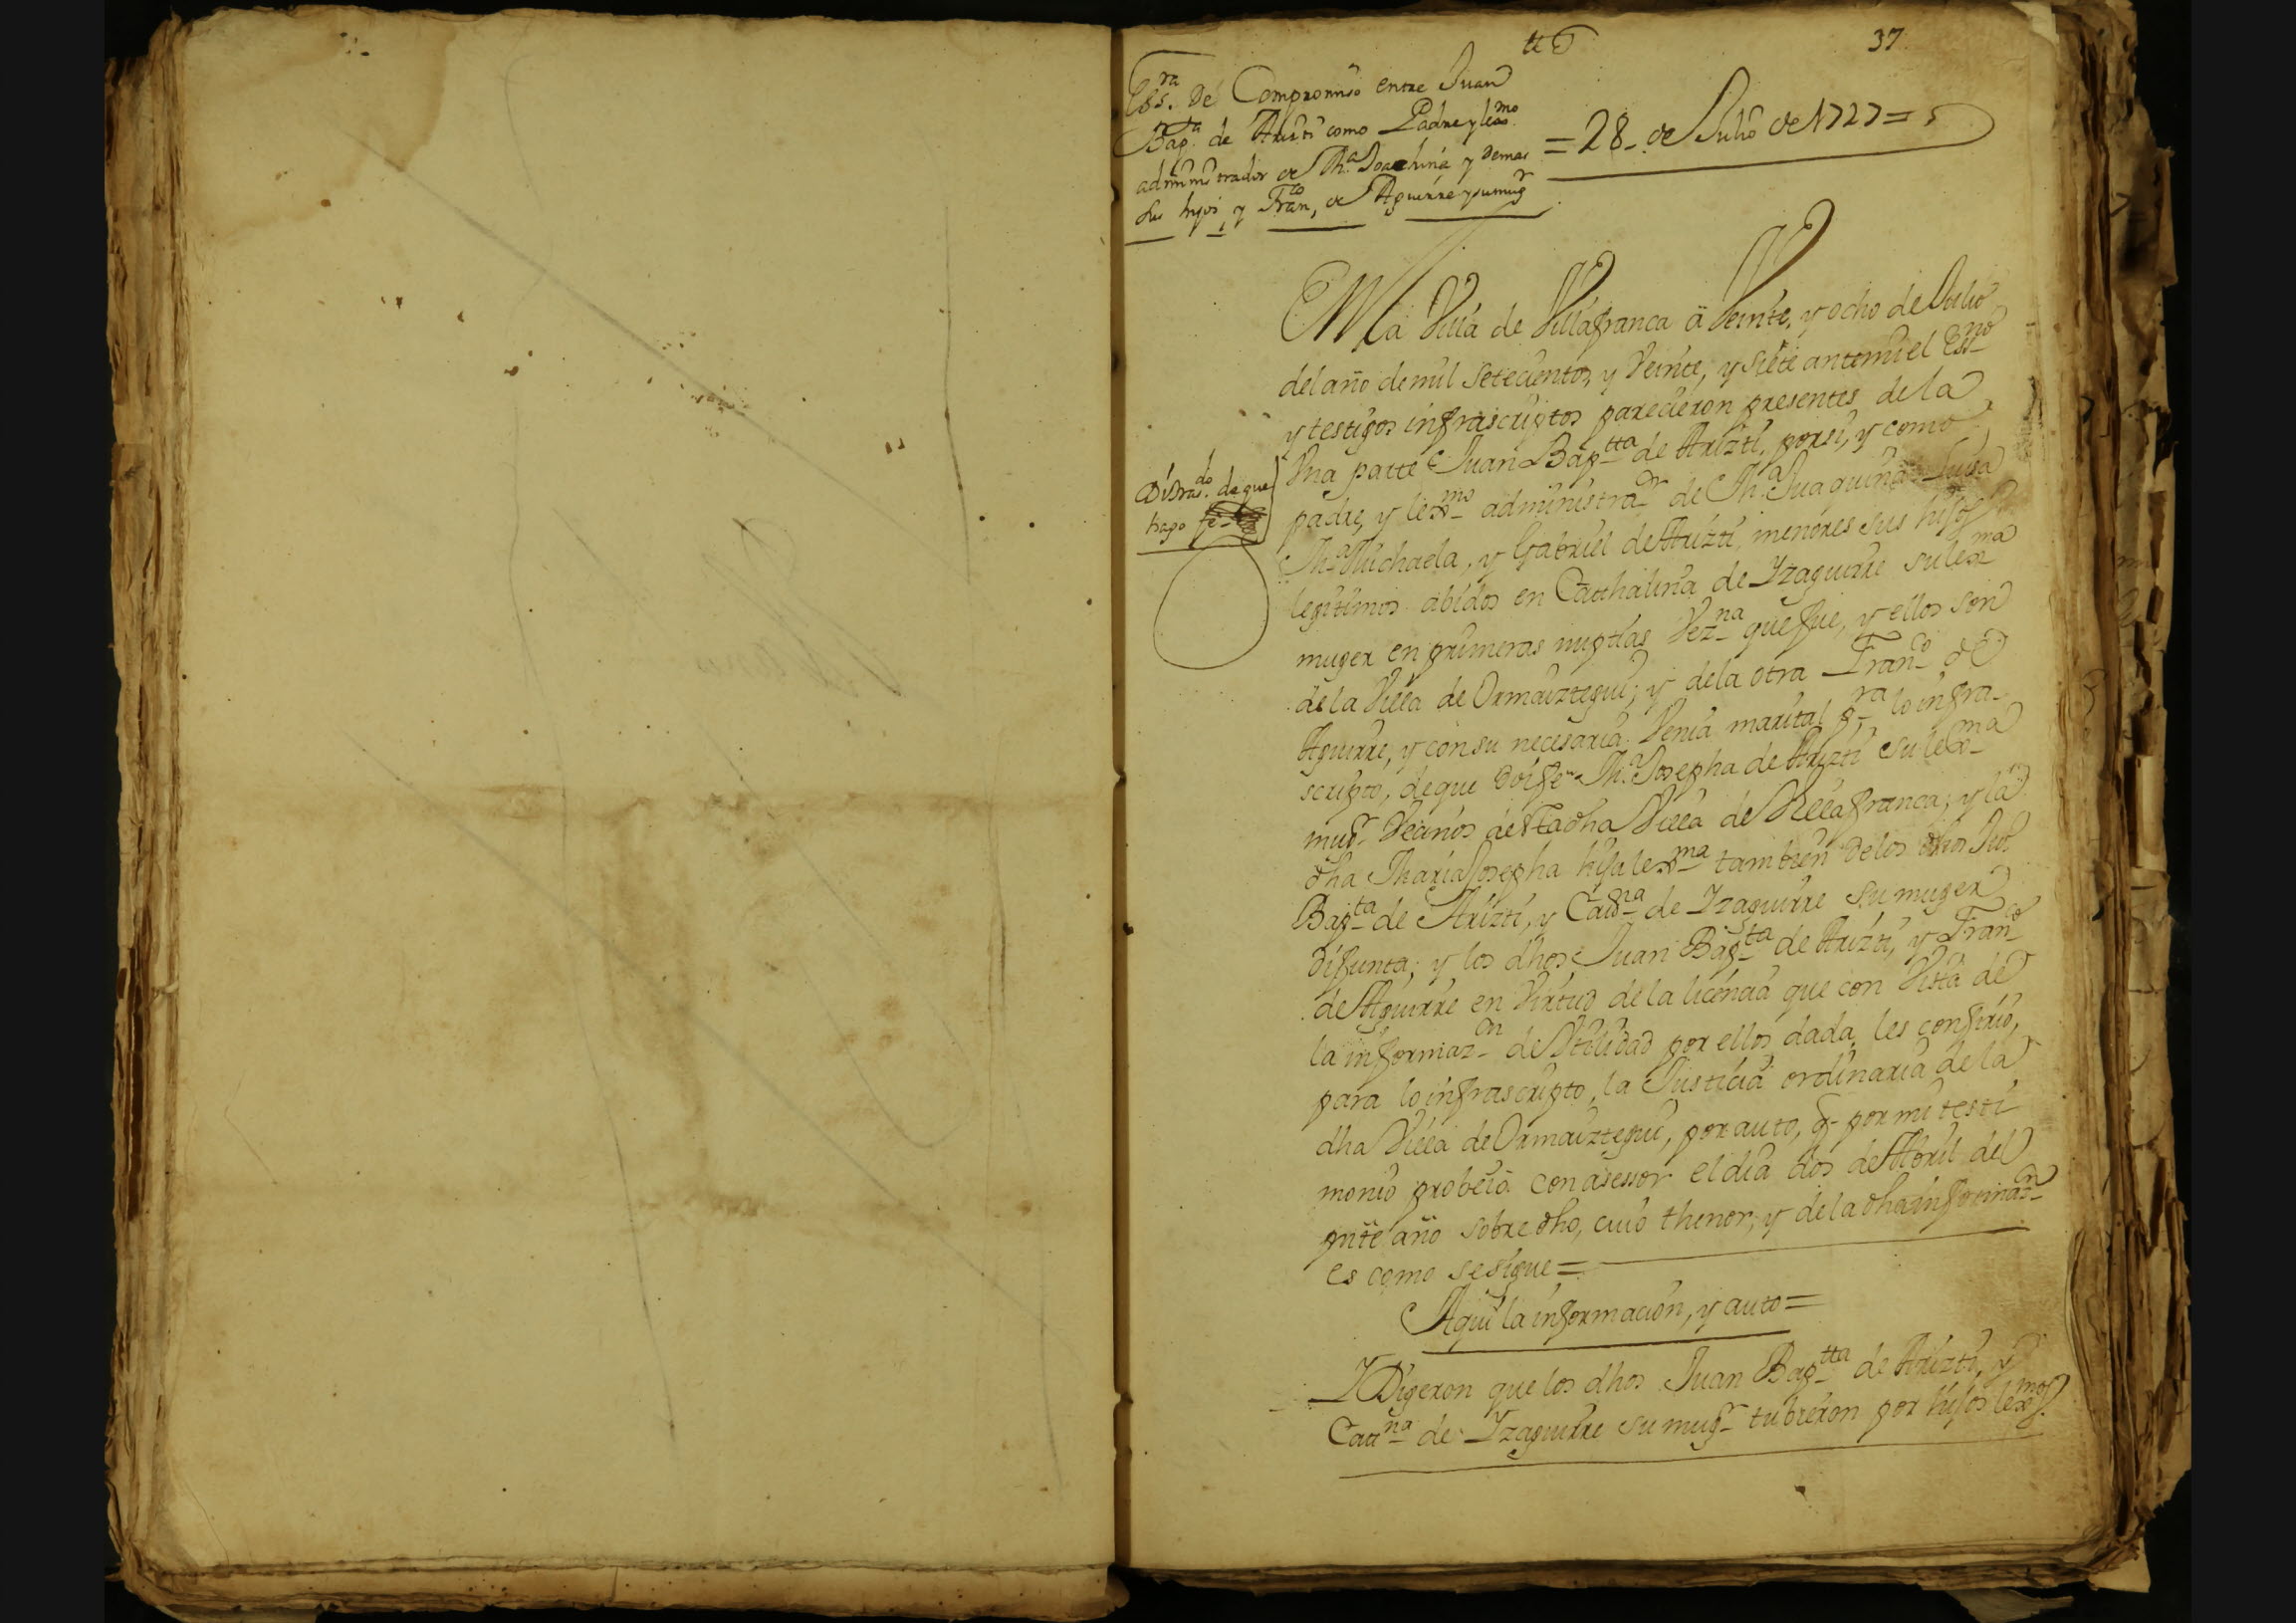 37
Ess.ra de Compromiso entre Juan
Bap.ta de Arizti como Padre y lexmo
administrador de Ma. Joachina y demas
sus hijos y Fran,co de Aguirre y su mugr
= 28 - de Julio de 1727 =
En la Villa de Villafranca á Veinte, y ocho de Julio
del año de mil setecientos, y Veinte, y siete antemi el Essno
y testigos infrascriptos parecieron presentes de la
Vna parte Juan Baptta de Arizti, por si, y como
padre, y lexmo administrar de Ma Juaquina Luisa
Ma Michaela, y Gabriel de Arizti, menores sus hijos
legitimos abidos en Catthalina de Yzaguirre su lexma
muger en primeras nuptias Vezna que fue, y ellos son
de la Villa de Ormaiztegui; y dela otra Franco de
Aguirre, y con su necesaria Venia marital pra lo infra-
scripto, deque doi fe Ma. Josepha de Arizti su lexma
mugr Vecinos de esta dha Villa de Villafranca; y la
dha Maria Josepha hija lexma tambien de los dhos Jun
Bapta de Arizti, y Catna de Yzaguirre su muger
difunta; y los dhos Juan Bapta de Arizti, y Franco
de Aguirre en Virtud de la licencia que con Vista de
la informazon de Vtilidad por ellos dada, les confirio,
para lo infrascripto, la Justicia ordinaria de la
dha Villa de Ormaiztegui, por auto, q- por mi testi
monio probeio con asessor el dia dos de Abril del
pnte año sobre dho, cuio thenor, y de la dha informazn
es como se sigue =
Aqui la informacion, y auto =
Y Digeron que los dhos Juan Baptta de Arizti, y
Catna de Yzaguirre su mugr tubieron por hijos lexmos
do. deque
hago fe